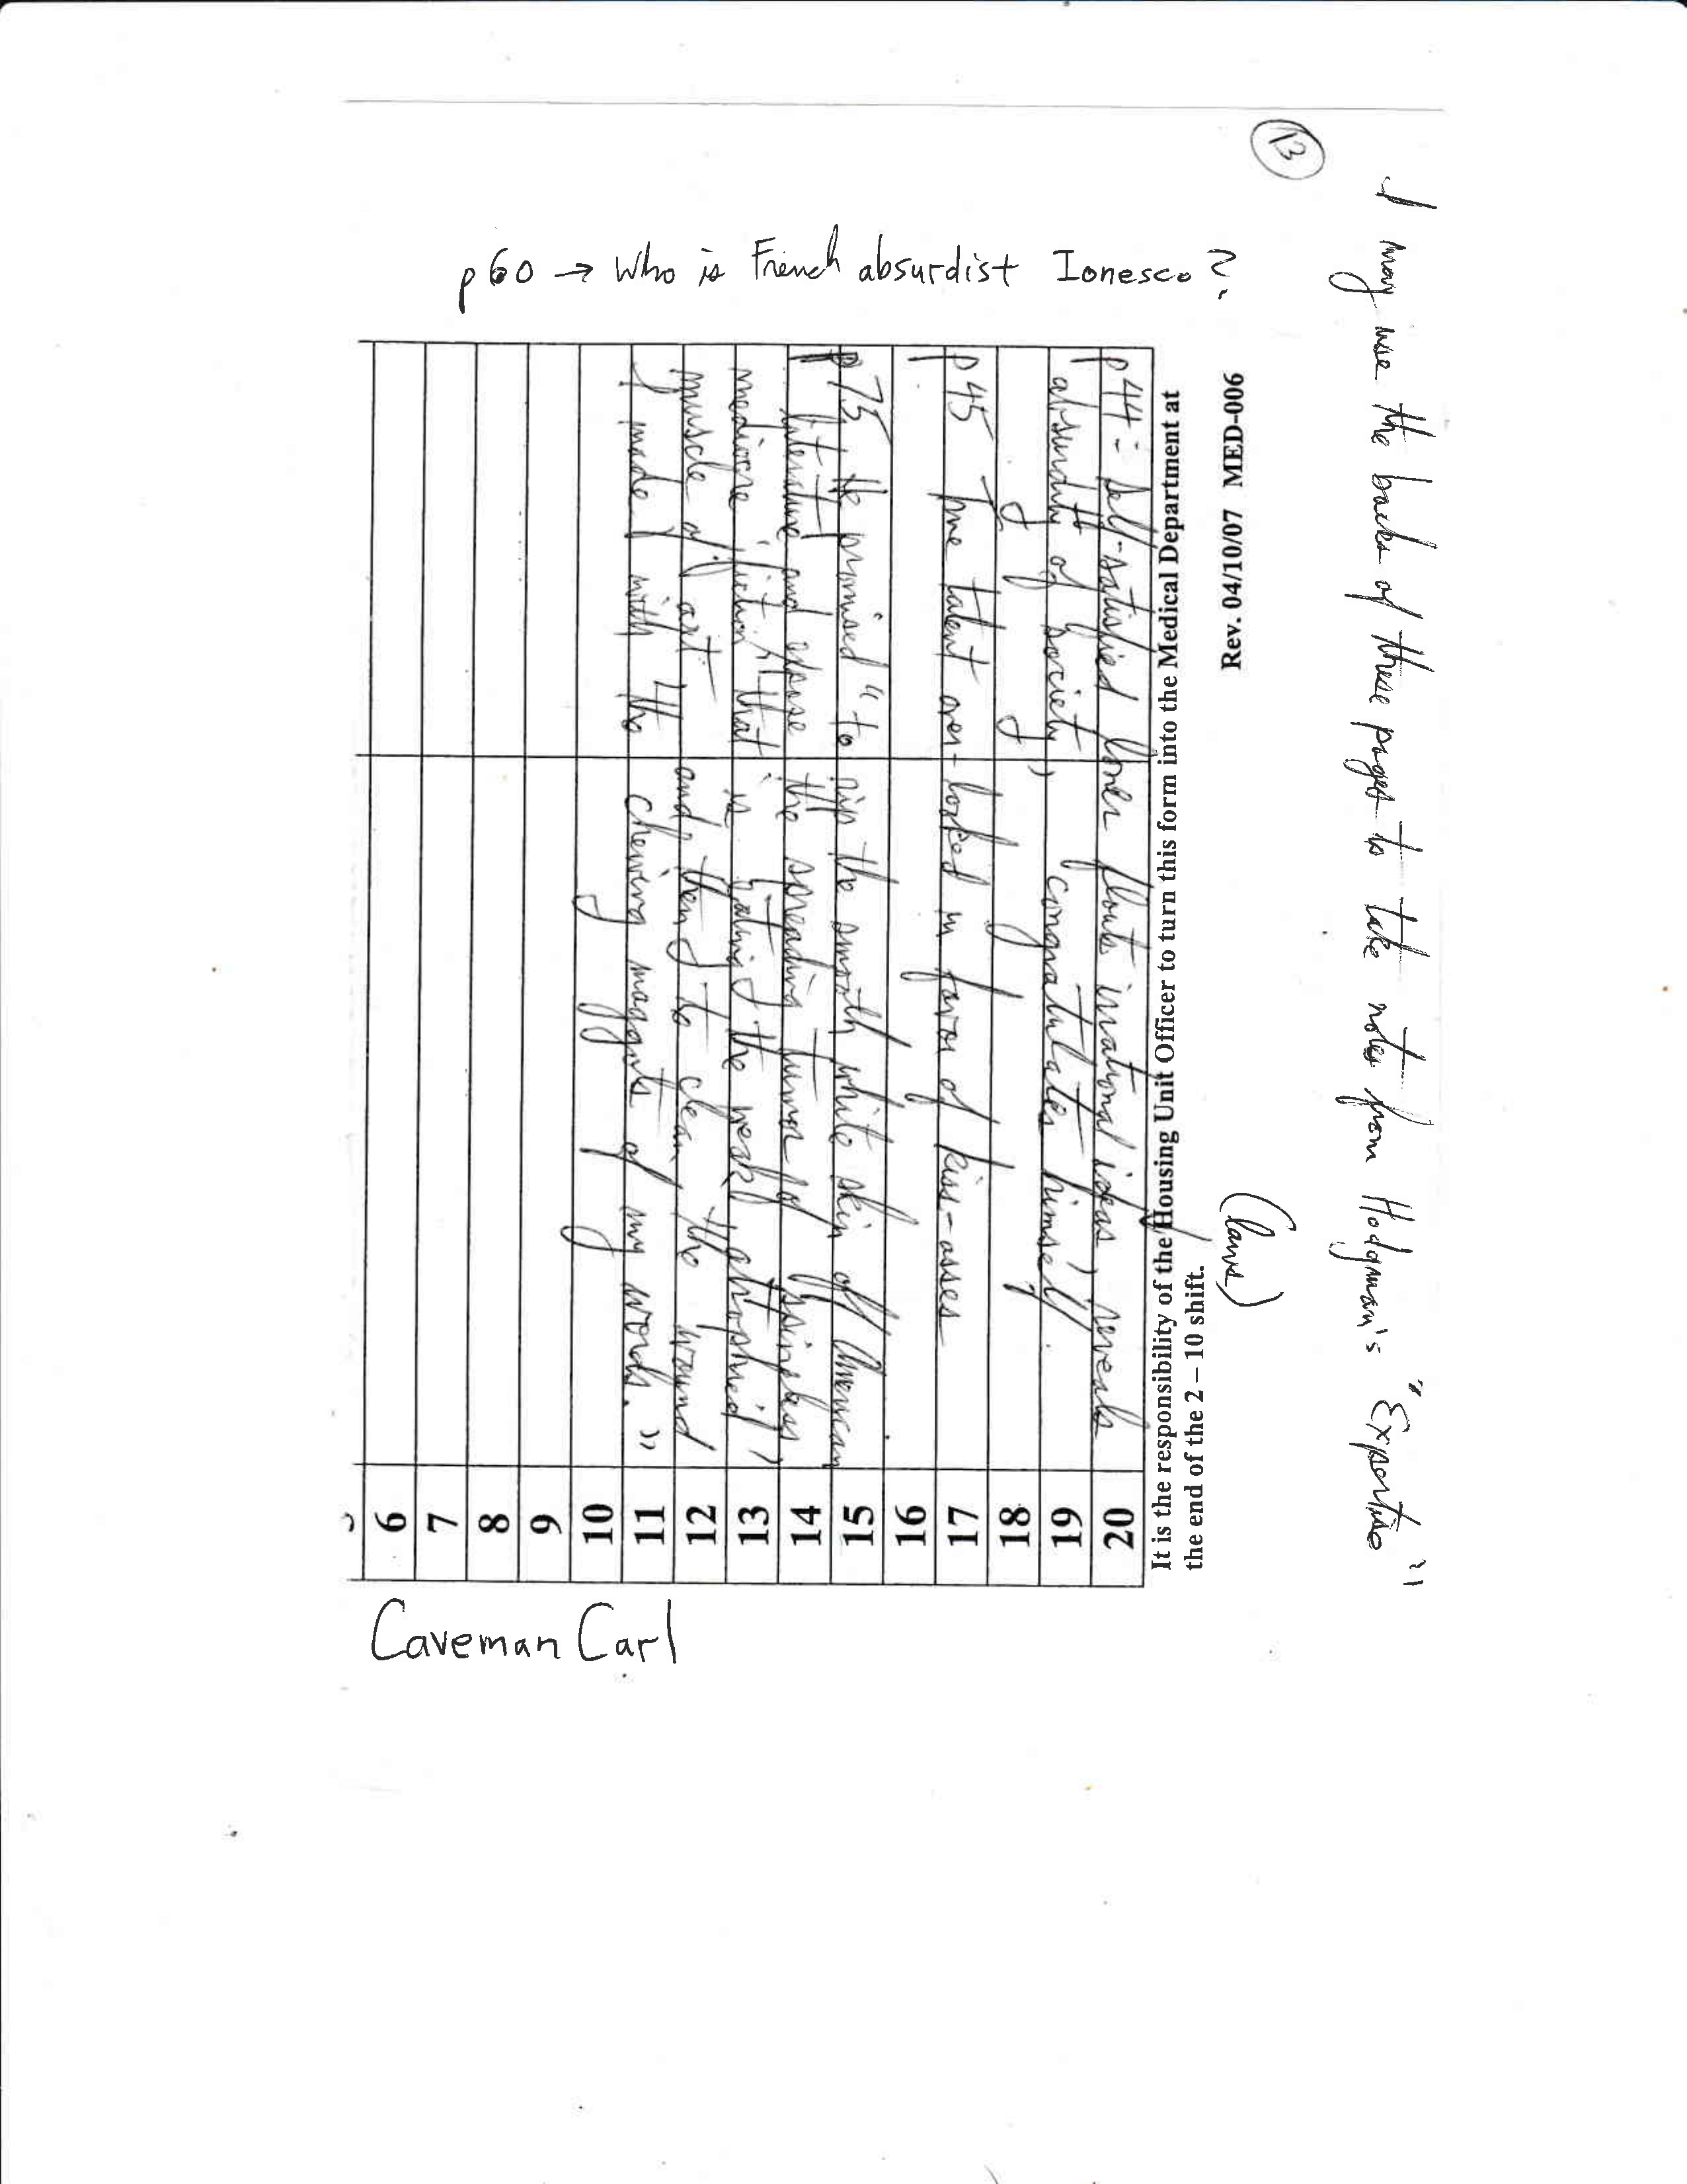 13
I may use the backs of these pages to take notes from Hodgman's "Expertise"
(Claws)
p60 → Who is French absurdist Ionesco?
Rev. 04/10/07 MED-006
It is the responsibility of the Housing Unit Officer to turn this form into the Medical Department at
the end of the 2 – 10 shift.
p44: Self-satisfied loner flouts irrational ideas, reveals
absurdity of society, congratulates himself.
p45 True talent over-looked in favor of kiss-asses
p75 He promised "to rip the smooth white skin off American
literature and expose the spreading tumor of
mediocre 'fiction' that is eating the weak, atrophied
muscle of art and then to clean the wound
I made with the chewing maggots of my words."
6
7
8
9
10
11
12
13
14
15
16
17
18
19
20
Caveman Carl